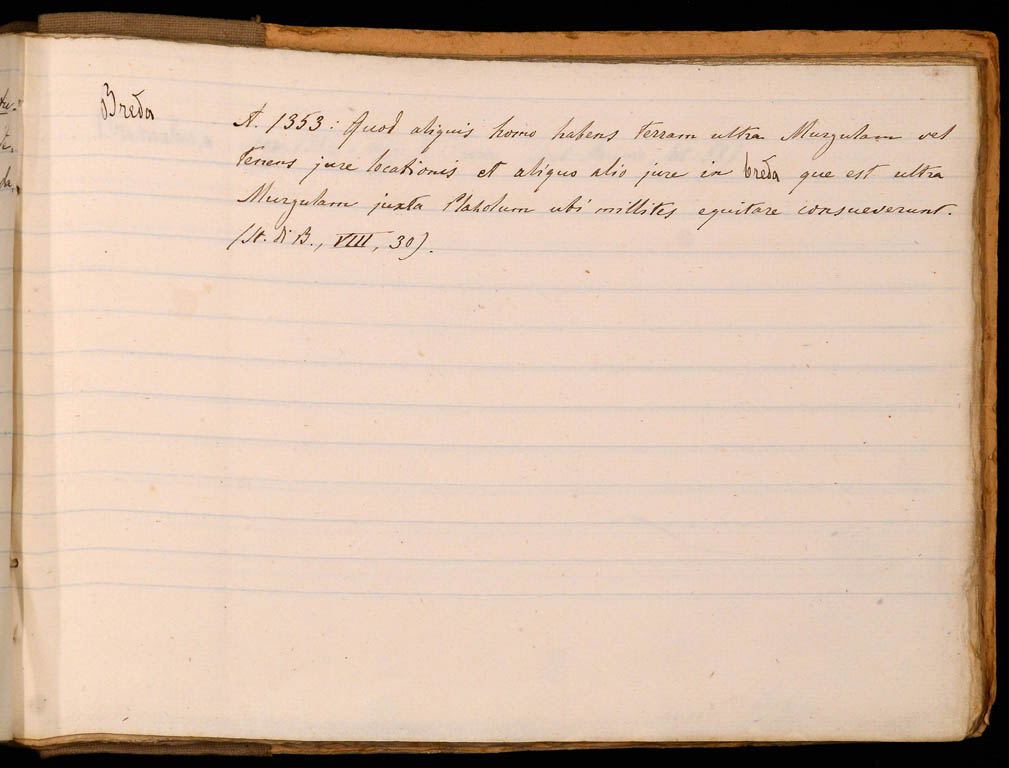 Breda
A. 1353: Quod aliquis homo habens terram ultra Murgulam vel
tenens jure locationis et aliquo alio jure in breda que est ultra
Murgulam juxta Platolum ubi millites equitare consueverunt.
(St. di B., VIII, 30).